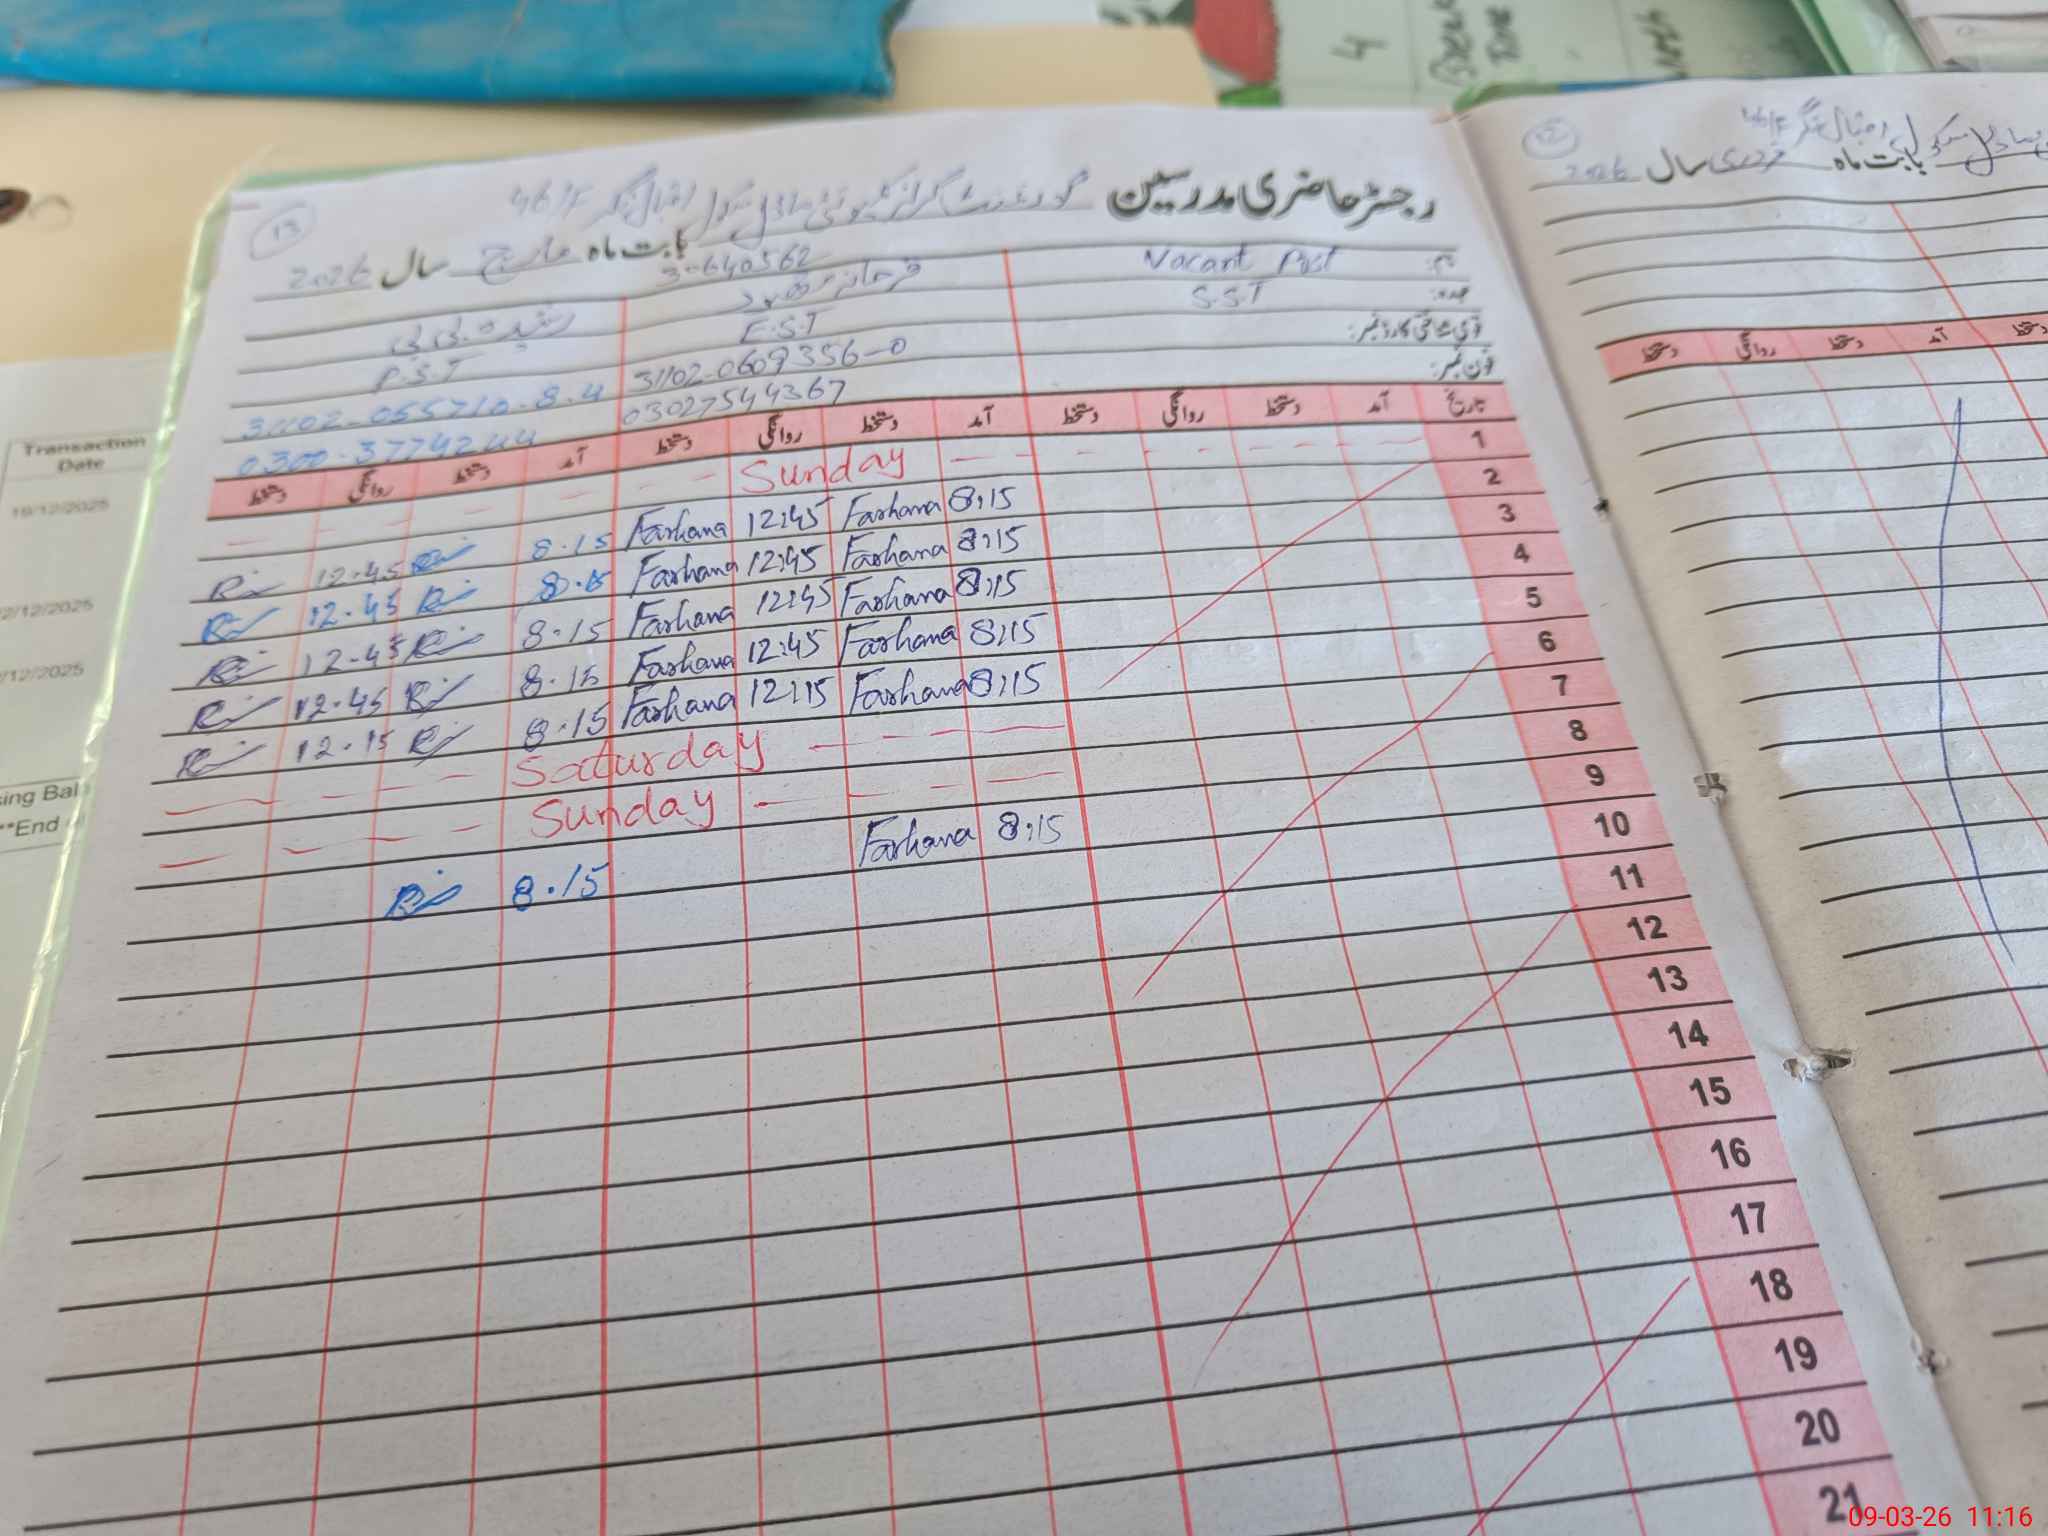 4 Break Time
13
رجسٹر حاضری مدرسین گورنمنٹ گرلز کمیونٹی ماڈل سکول اقبال نگر 46/F
بابت ماہ مارچ سال 2026
نام: Vacant Post
عہدہ: S.S.T
قومی شناختی کارڈ نمبر:
فون نمبر:
30640562
فرحانہ
E.S.T
31102-0609356-0
03027544367
بی بی
P.S.T
31102-055710-8-4
0300-3774244
تاریخ آمد دستخط روانگی دستخط آمد دستخط روانگی دستخط آمد دستخط روانگی دستخط
1 Sunday
2 8:15 Farhana 12:45 Farhana 8.15 12.45
3 8:15 Farhana 12:45 Farhana 8.15 12.45
4 8:15 Farhana 12:45 Farhana 8.15 12.45
5 8:15 Farhana 12:45 Farhana 8.15 12.45
6 8:15 Farhana 12:15 Farhana 8.15 12.15
7 Saturday
8 Sunday
9 8:15 Farhana 8.15
10
11
12
13
14
15
16
17
18
19
20
21
سکول اقبال نگر 46/F
بابت ماہ فروری سال 2026
دستخط آمد دستخط روانگی دستخط
Transaction
Date
19/12/2025
2/12/2025
/12/2025
ing Bal
**End
09-03-26 11:16